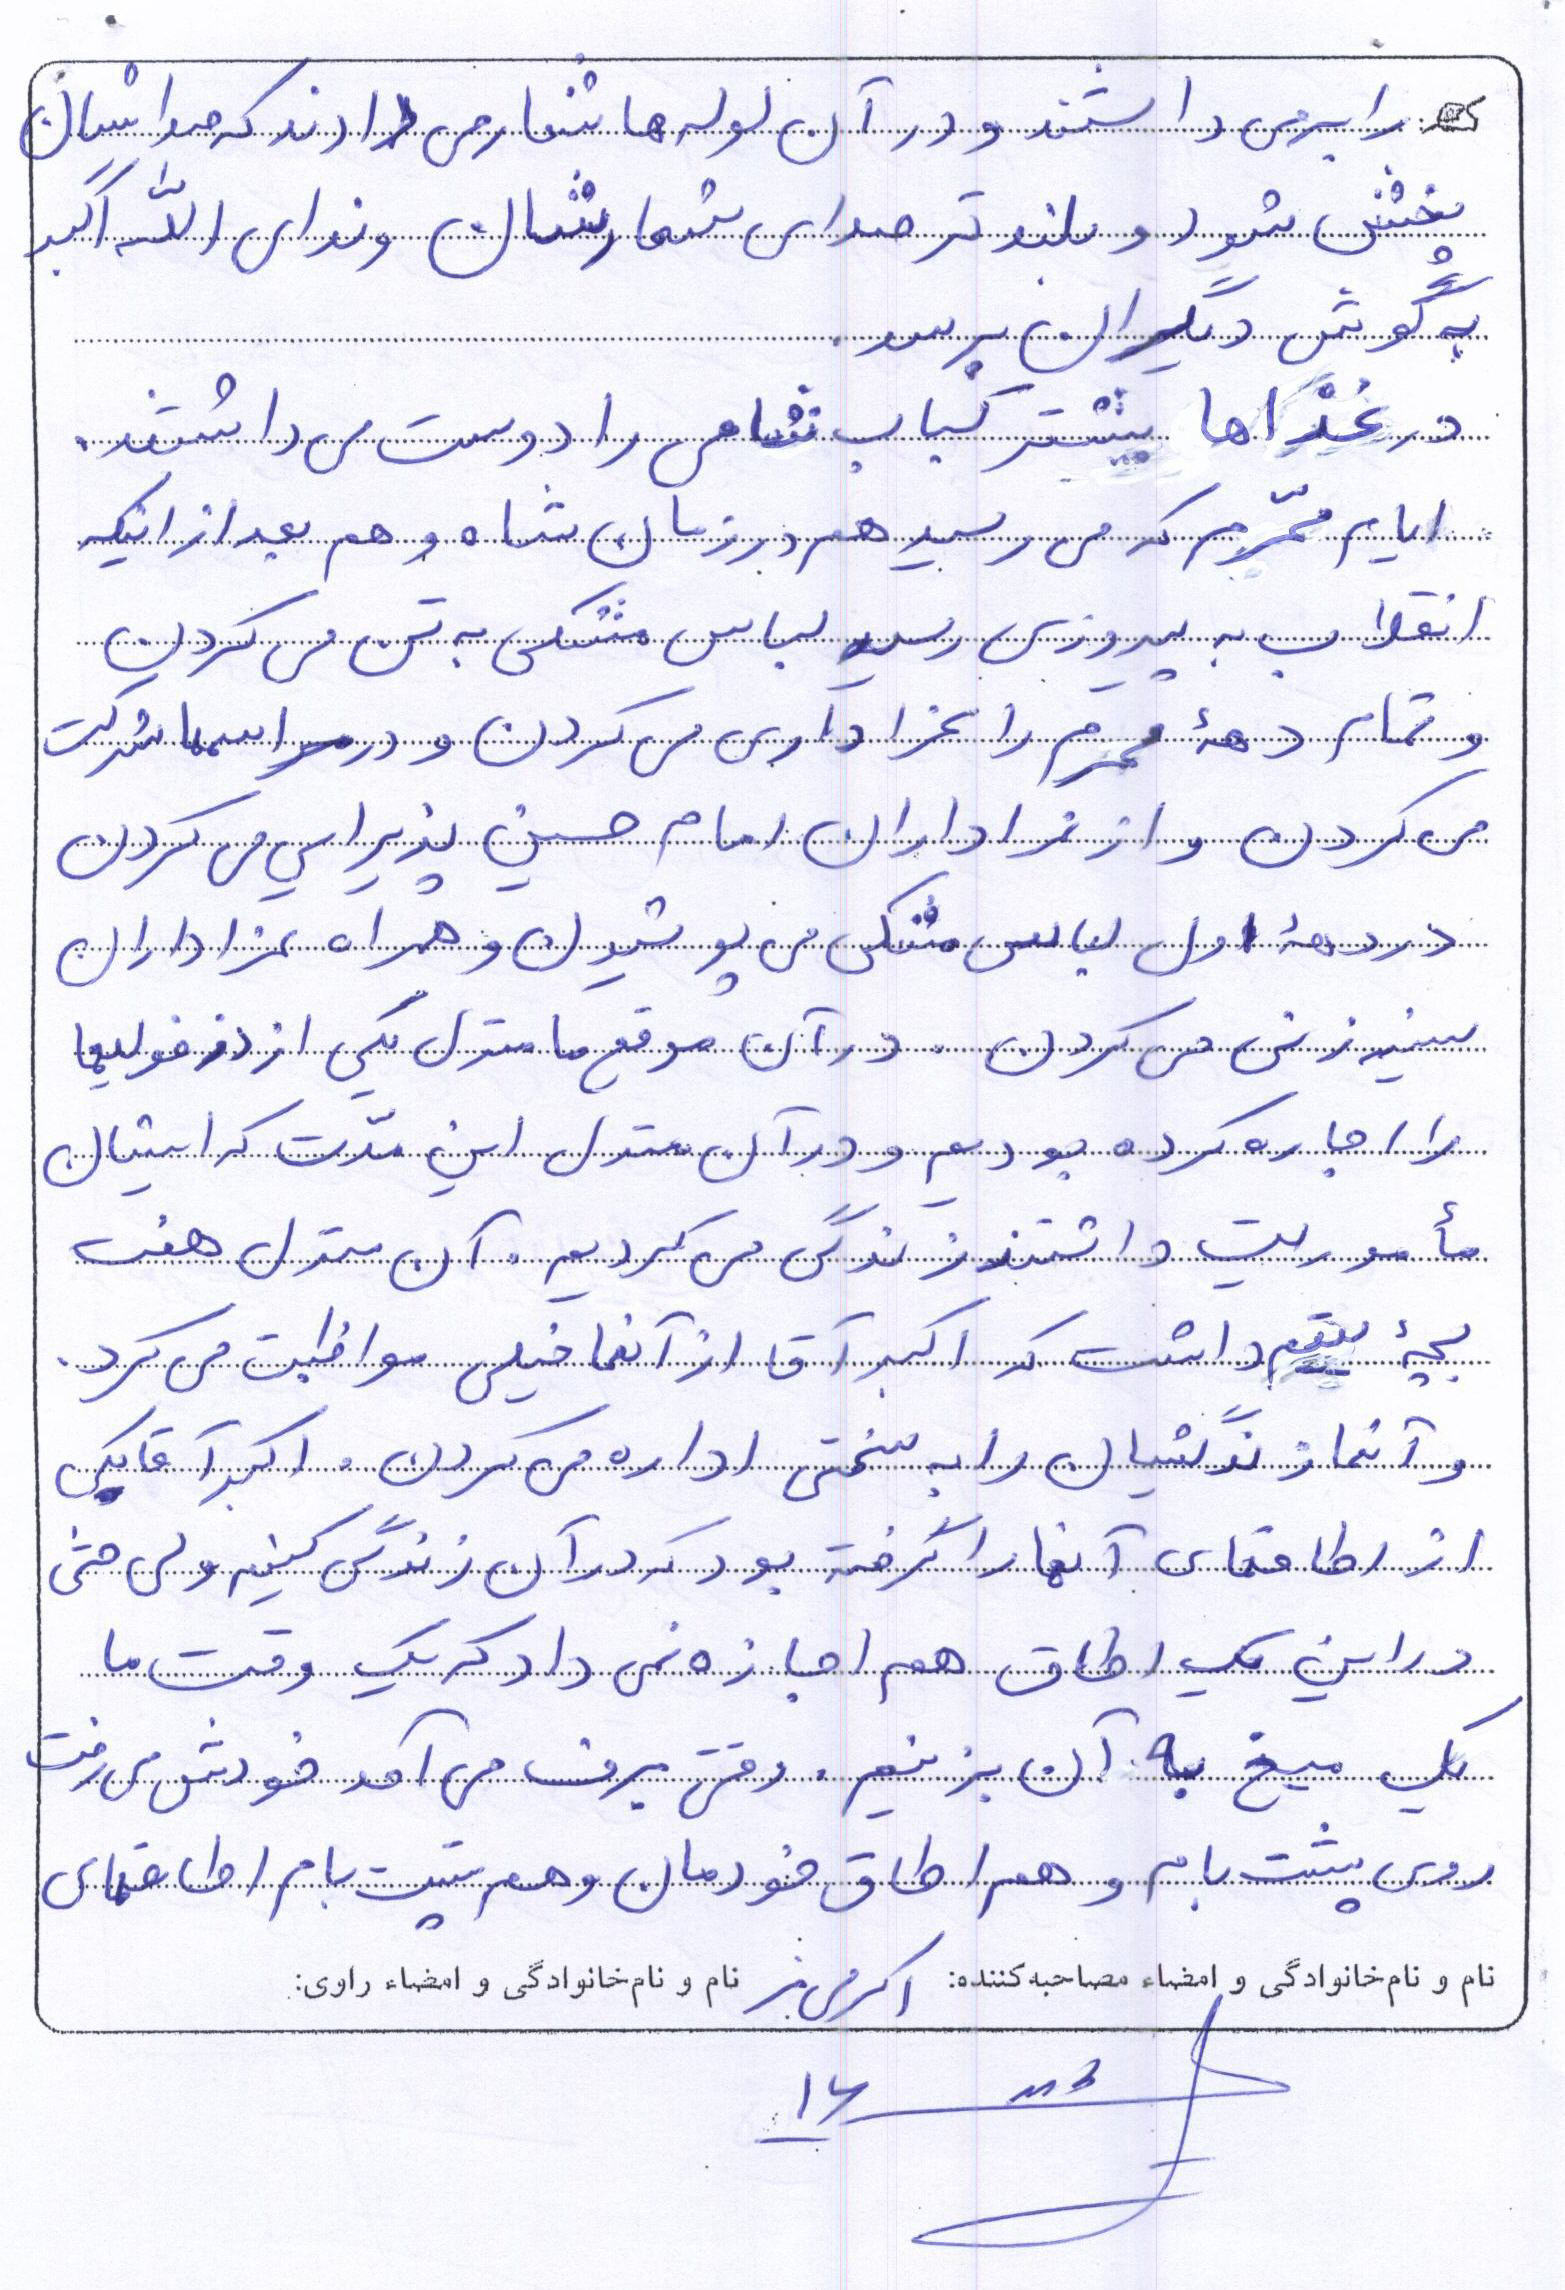 را برمی داشتند و در آن لوله ها شعار می دادند که صداشان
پخش شود و بلندتر صدای شعارشان و ندای اللّه اکبر
به گوش دیگران برسد.
در غذاها بیشتر کباب شامی را دوست می داشتند.
ایام محرّم که می رسید هم در زمان شاه و هم بعد از اینکه
انقلاب به پیروزی رسید لباس مشکی به تن می کردن
و تمام دههٔ محرم را عزاداری می کردن و در مراسمها شرکت
می کردن و از عزاداران امام حسین پذیرایی می کردن
در دههٔ اول لباس مشکی می پوشیدن و همراه عزاداران
سینه زنی می کردن. در آن موقع ما منزل یکی از دزفولیها
را اجاره کرده بودیم و در آن منزل این مدّت که ایشان
مأموریت داشتند زندگی می کردیم. آن منزل هفت
بچهٔ یتیم داشت که اکبر آقا از آنها خیلی مواظبت می کرد.
و آنها زندگیشان را به سختی اداره می کردن. اکبر آقا یکی
از اطاقهای آنها را گرفته بود که در آن زندگی کنیم ولی حتی
در این یک اطاق هم اجازه نمی داد که یک وقت ما
یک میخ به آن بزنیم. وقتی برف می آمد خودش می رفت
روی پشت بام و هم اطاق خودمان و هم پشت بام اطاقهای
نام و نام‌خانوادگی و امضاء مصاحبه‌کننده: نام و نام‌خانوادگی و امضاء راوی:
۱۶